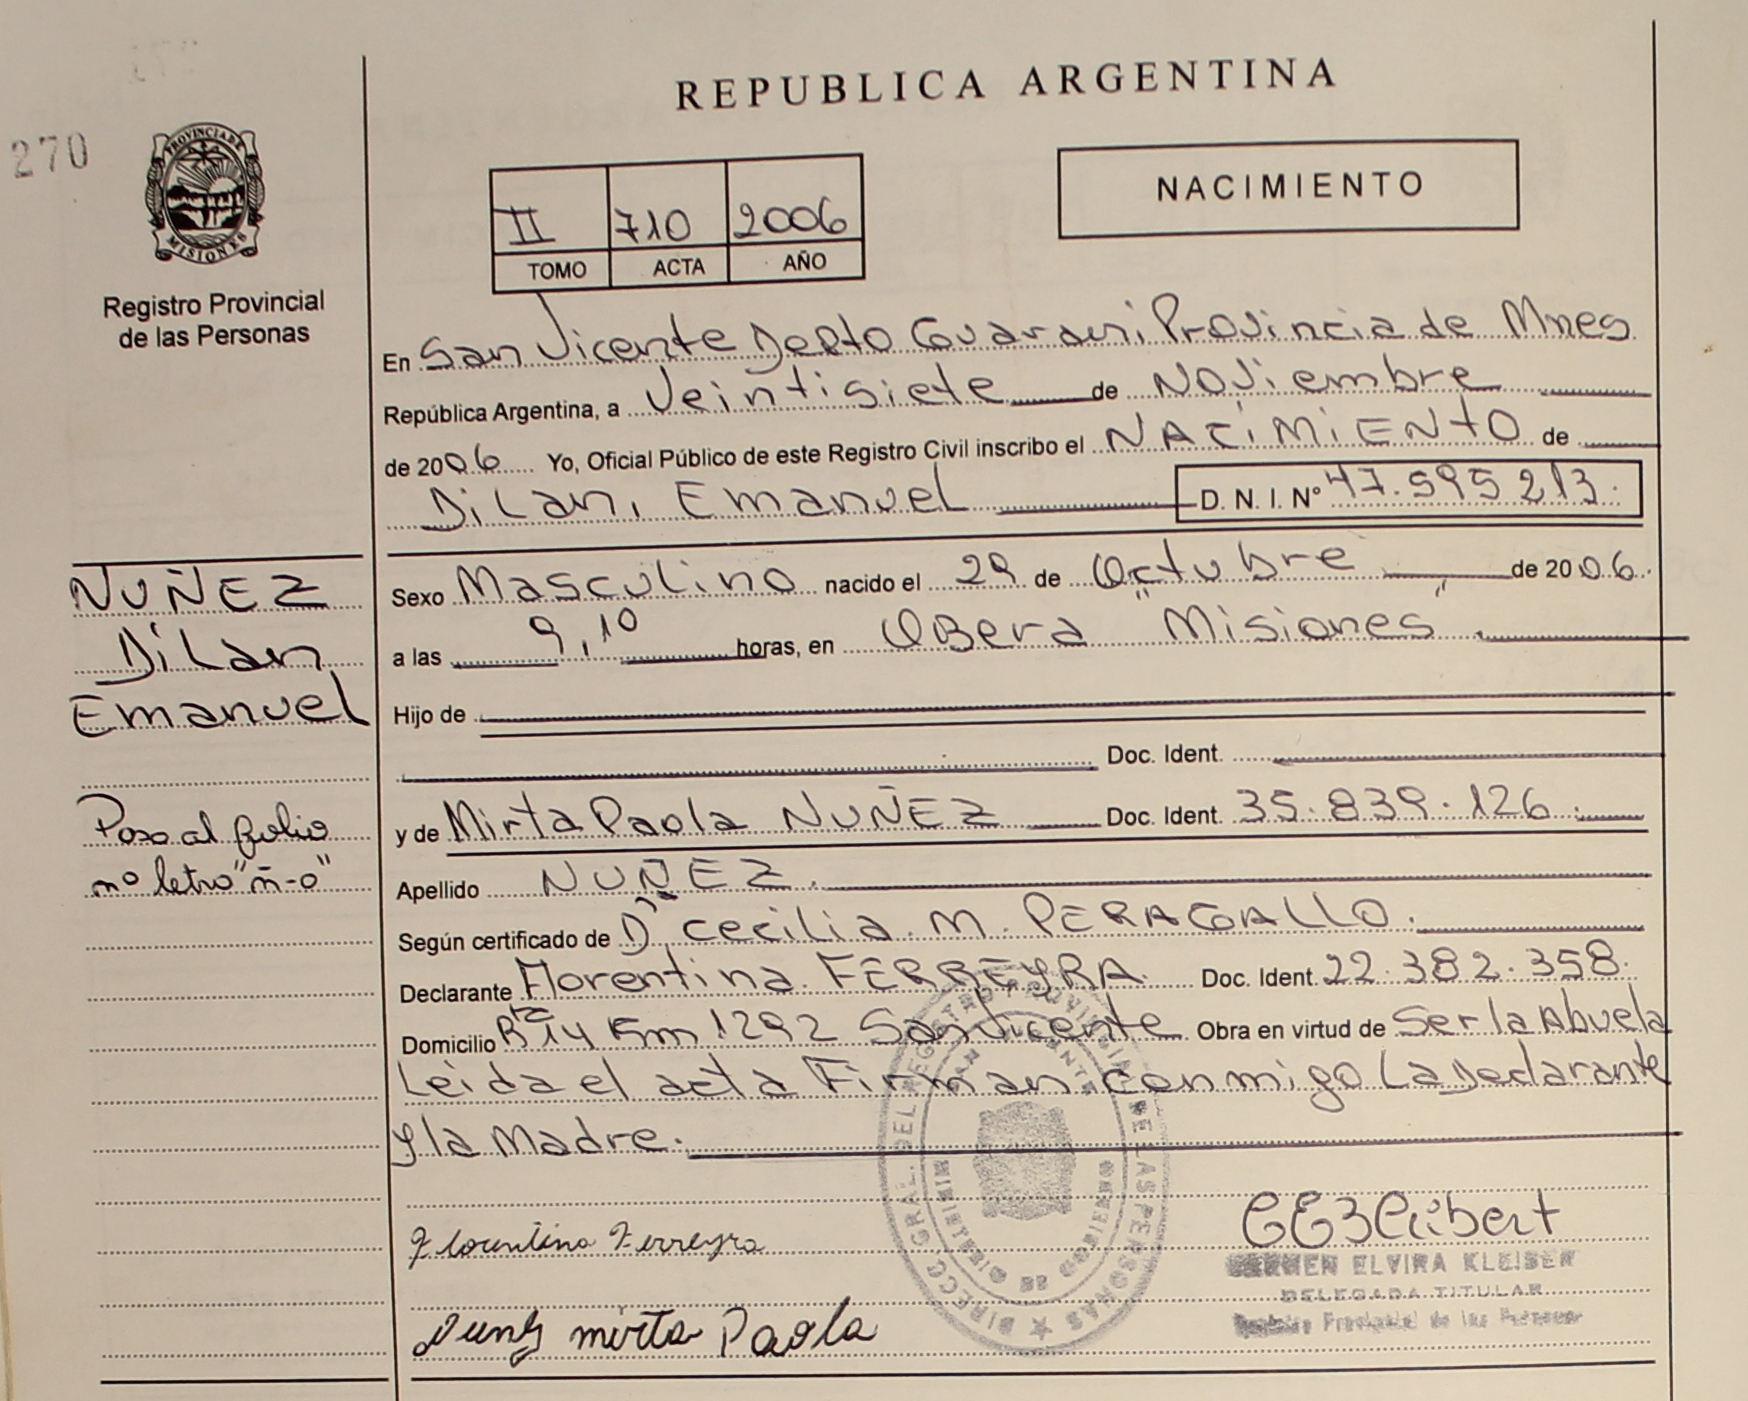 REPUBLICA ARGENTINA
270
PROVINCIA DE
MISIONES
Registro Provincial
de las Personas
II 710 2006
TOMO ACTA AÑO
NACIMIENTO
En San Vicente Depto Guarani Provincia de Mnes
República Argentina, a Veintisiete de Noviembre
de 2006 Yo, Oficial Público de este Registro Civil inscribo el NACIMIENTO de
Dilan, Emanuel D. N. I. Nº 47.595 213.
NUÑEZ
Dilan
Emanuel
Paso al folio
nº letra "ñ-o"
Sexo Masculino nacido el 29 de Octubre de 2006.
a las 9,10 horas, en Obera "Misiones".
Hijo de
Doc. Ident.
y de Mirta Paola NUÑEZ Doc. Ident. 35.839.126.
Apellido NUÑEZ.
Según certificado de Dª Cecilia. M. PERAGALLO.
Declarante Florentina FERREYRA. Doc. Ident. 22.382.358.
Domicilio Rta 14 Km 1292 San Vicente. Obra en virtud de Ser la Abuela
Leida el acta Firman conmigo La Declarante
y la Madre.
Florentina Ferreyra
mirta Paola
CARMEN ELVIRA KLEISER
DELEGADA TITULAR
Registro Provincial de las Personas
DIRECC. GRAL. DEL REGISTRO PROVINCIAL DE LAS PERSONAS
SAN VICENTE
MINISTERIO DE GOBIERNO